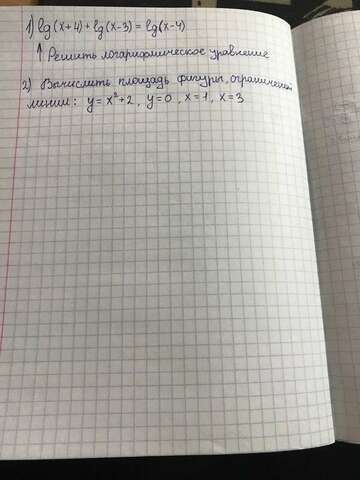 1) lg(x+4)+lg(x-3)=lg(x-4)
↑ Решить логарифмическое уравнение
2) Вычислить площадь фигуры, ограничен
линии: y=x²+2, y=0, x=1, x=3